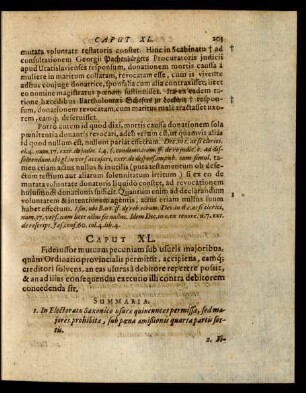 CAPUT XL. 203
mutata voluntate testatoris constet. Hinc in Scabinatu † ad
consultationem Georgii Pachenbürgers Procuratoris judicii
apud Uratislavienses responsum, donationem mortis causâ à
muliere in maritum collatam, revocatam esse, cum is vivente
adhuc conjuge donatrice, sponsalia cum alia contraxisset, licet
eo nomine magistratus pœnam sustinuisset. Itaex eadem ra-
tione hæredibus Bartholomæi † respon-
sum, donationem revocatam, cum maritus malè tractasset uxo-
rem, eamq; deseruisset.
Porro autem id quod dixi, mortis causa donationem sola
pœnitentia donantis revocari, adeò verum est, ut quamvis aliàs
id quod nullum est, non possit operari effectum.
tamen etiam actus nullus & inutilis (puta testamentum ob te-
stium defectum aut aliarum solennitatum irritum) si ex eo de
mutata voluntate donatoris liquidò constet, ad revocationem
hujusmodi donationis sufficit. Quoniam enim ad declarandum
voluntatem & intentionem agentis, actus etiam nullus suum
habet effectum.
CAPUT XL.
Fidejussor mutuam pecuniam sub usuris majoribus,
quàm Ordinatio provincialis permittit, accipiens, eamq;
creditori solvens, an eas usuras à debitore repetere possit,
& an ad illas consequendas executio illi contra debitorem
concedenda sit.
SUMMARIA.
1. In Electoratu Saxonico usuræ quincunces permissæ, sed ma-
jores prohibitæ, sub pœna amissionis quartæ partis sor-
tis.
2. Fi-